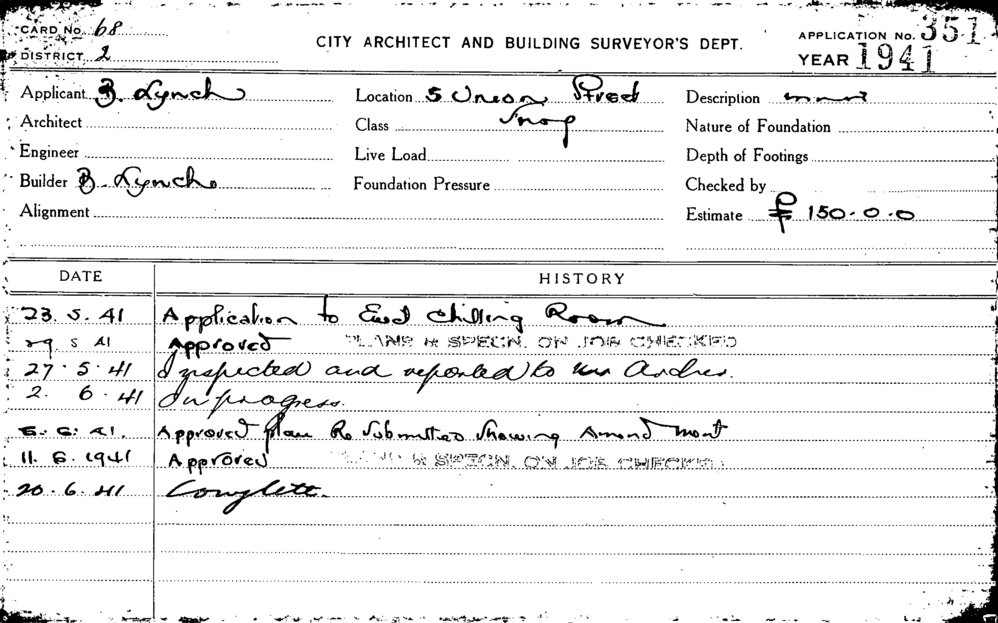 CARD No. 68
DISTRICT 2
CITY ARCHITECT AND BUILDING SURVEYOR'S DEPT.
APPLICATION No. 351
YEAR 1941
Applicant B. Lynch Location 5 Union Street Description
Architect Class Shop Nature of Foundation
Engineer Live Load Depth of Footings
Builder B. Lynch Foundation Pressure Checked by
Alignment Estimate £ 150-0-0
DATE HISTORY
23. 5. 41 Application to Chilling Room
29 5 41 Approved PLANS & SPECN. ON JOB CHECKED
27. 5. 41 Inspected and reported to Mr
2. 6. 41 In progress.
6. 6. 41. Approved plan Re Submitted Showing Amendment
11. 6. 1941 Approved PLANS & SPECN. ON JOB CHECKED
20. 6. 41 Complete.